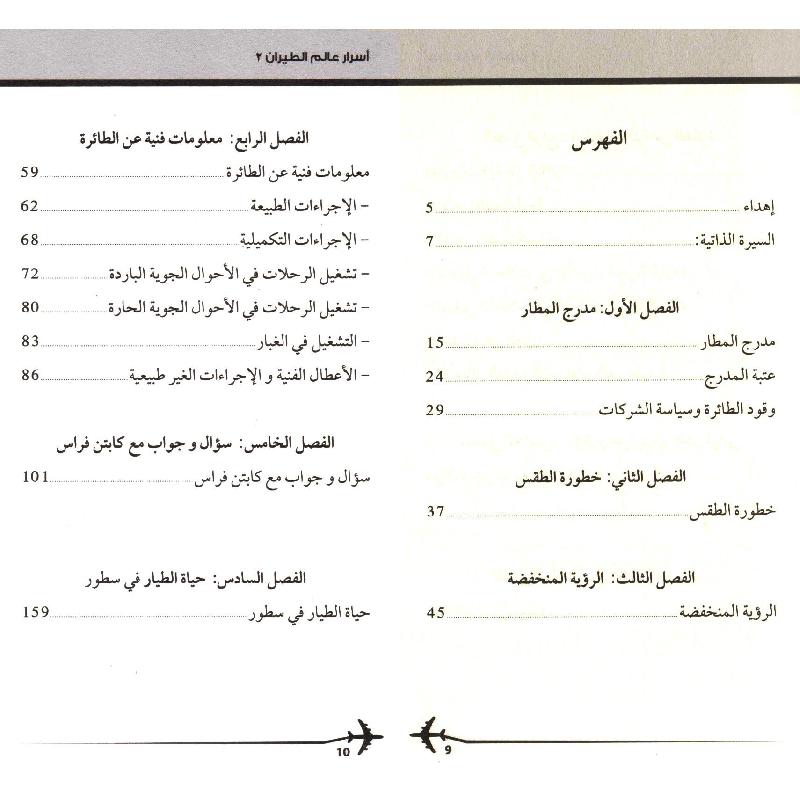 الفهرس
إهداء ..... 5
السيرة الذاتية: ..... 7
الفصل الأول: مدرج المطار
مدرج المطار ..... 15
عتبة المدرج ..... 24
وقود الطائرة وسياسة الشركات ..... 29
الفصل الثاني: خطورة الطقس
خطورة الطقس ..... 37
الفصل الثالث: الرؤية المنخفضة
الرؤية المنخفضة ..... 45
9
أسرار عالم الطيران ٢
الفصل الرابع: معلومات فنية عن الطائرة
معلومات فنية عن الطائرة ..... 59
- الإجراءات الطبيعة ..... 62
- الإجراءات التكميلية ..... 68
- تشغيل الرحلات في الأحوال الجوية الباردة ..... 72
- تشغيل الرحلات في الأحوال الجوية الحارة ..... 80
- التشغيل في الغبار ..... 83
- الأعطال الفنية و الإجراءات الغير طبيعية ..... 86
الفصل الخامس: سؤال و جواب مع كابتن فراس
سؤال و جواب مع كابتن فراس ..... 101
الفصل السادس: حياة الطيار في سطور
حياة الطيار في سطور ..... 159
10